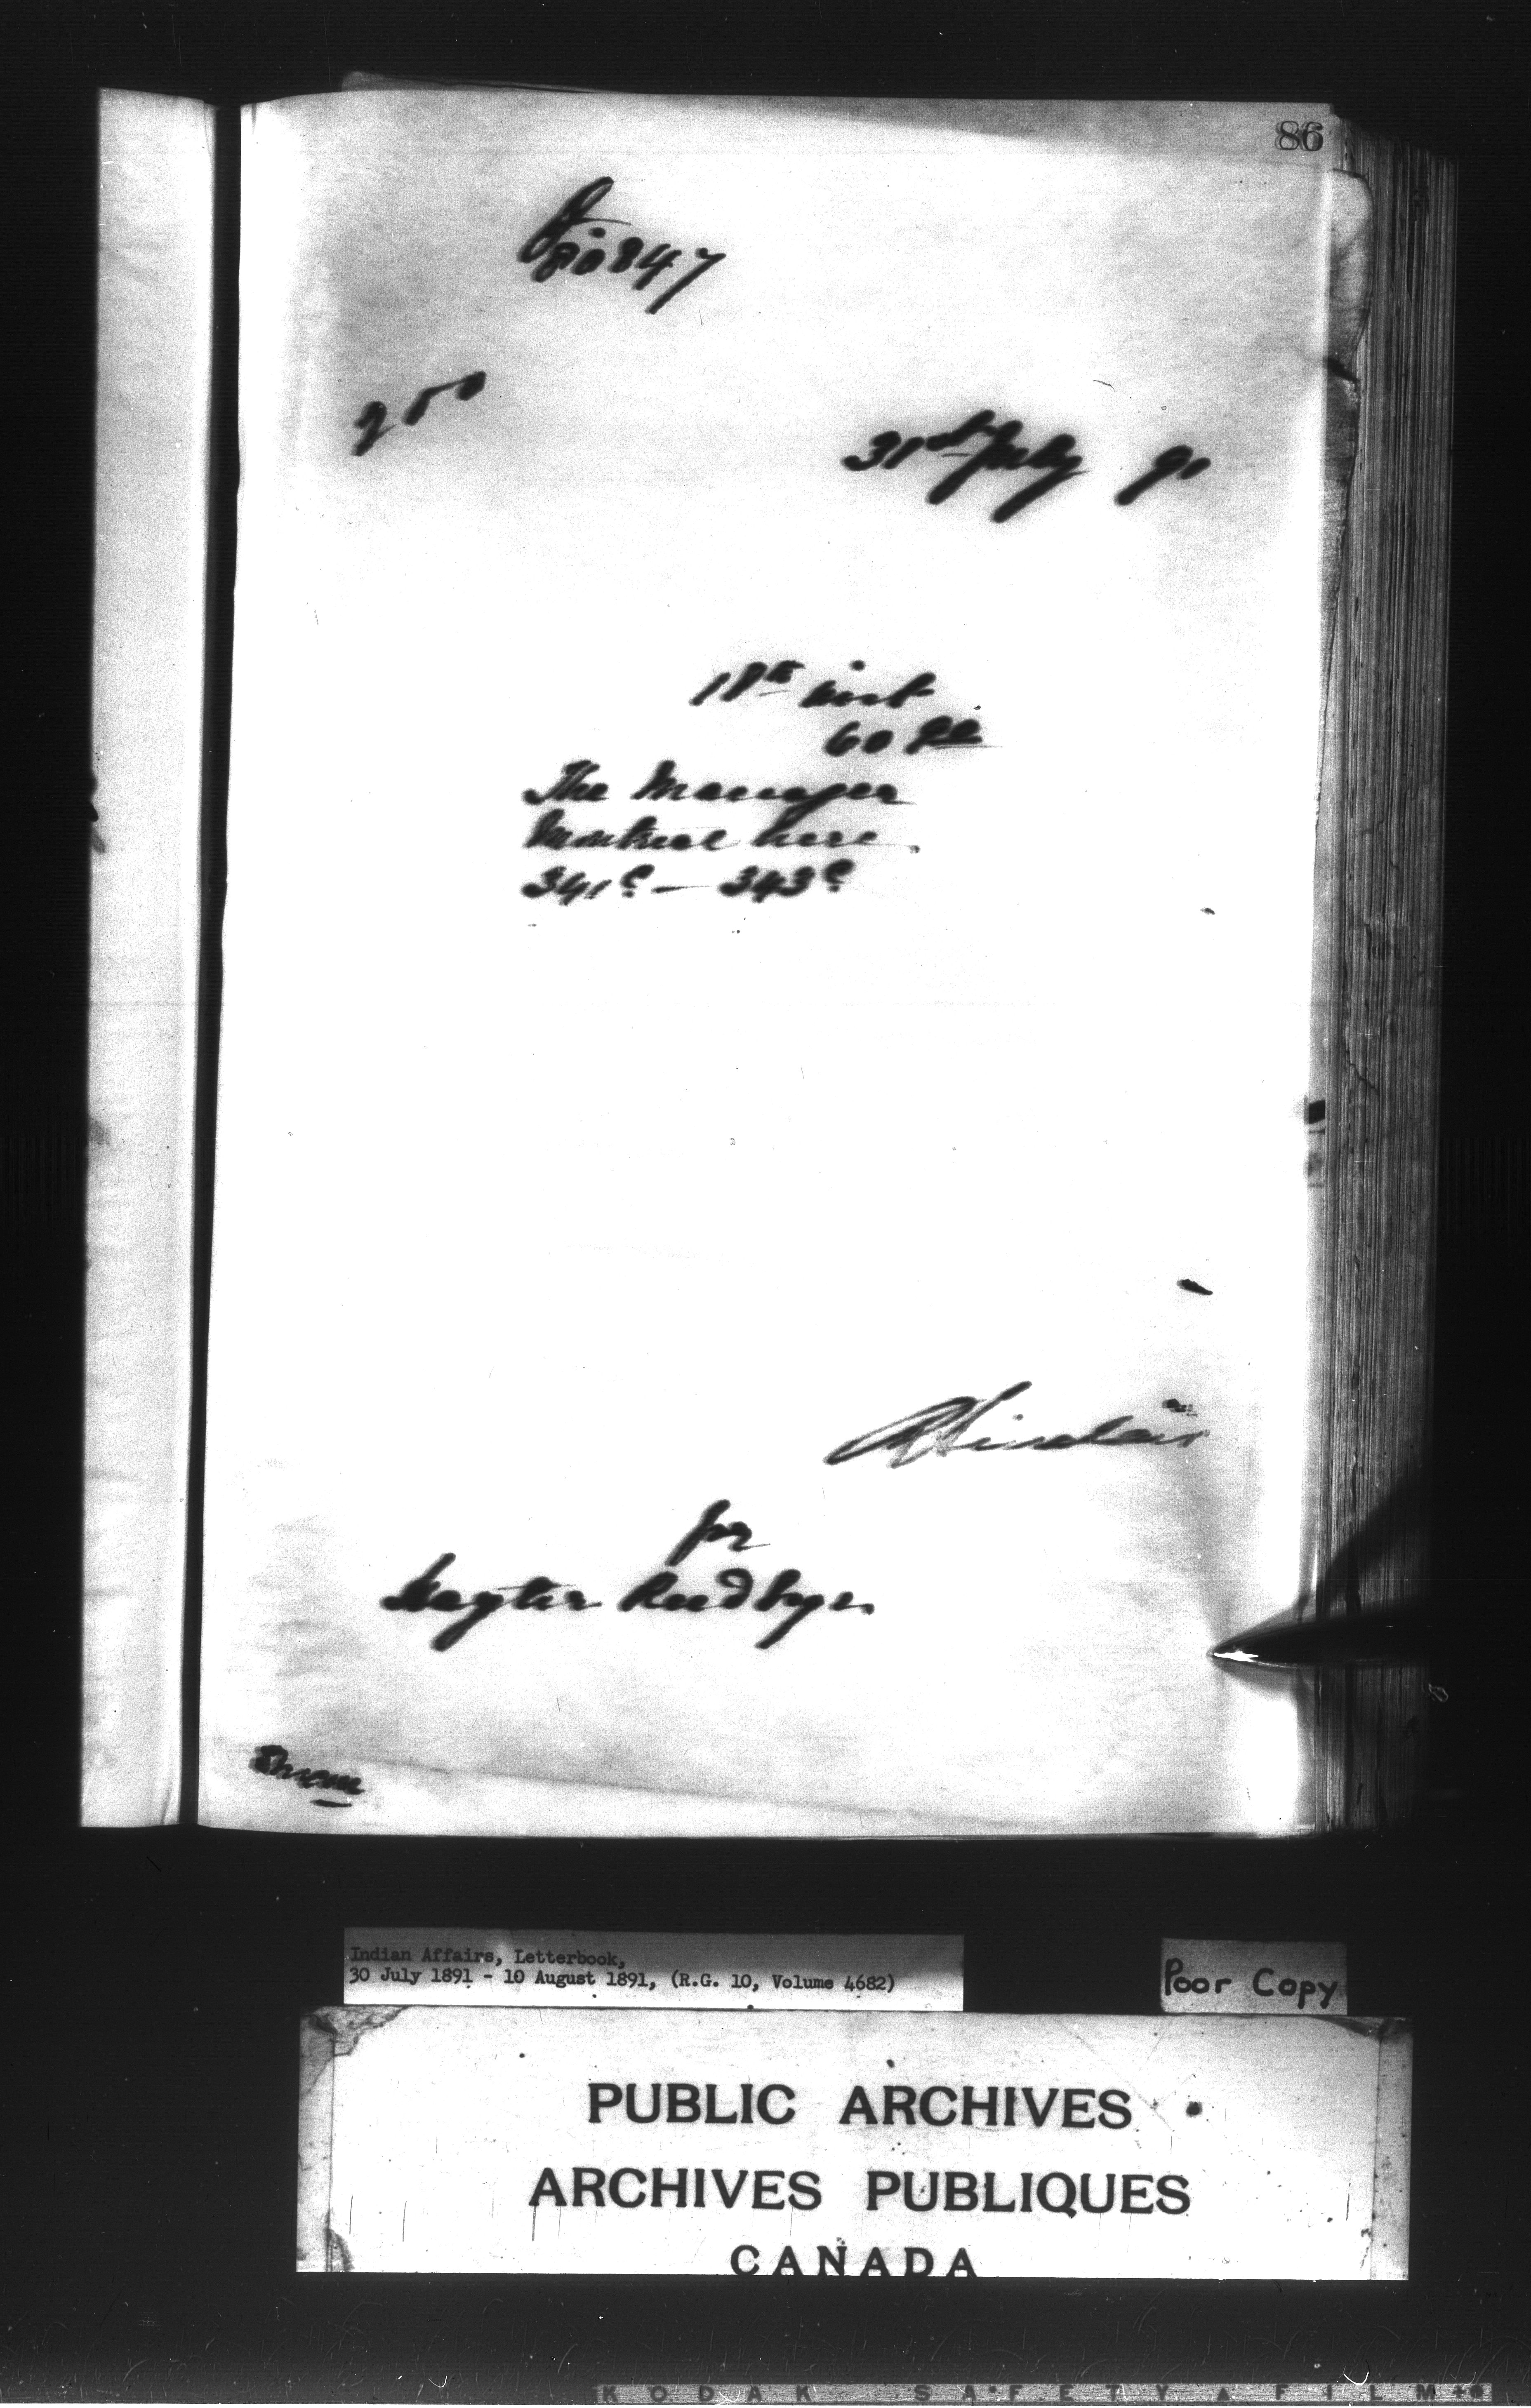 86
80847
250
31st July 91
18th inst
60
The Manager
Montreal here.
341 — 343
A Sinclair
for
Hayter Reed Esq.
Indian Affairs, Letterbook,
30 July 1891 - 10 August 1891, (R.G. 10, Volume 4682)
Poor Copy
PUBLIC ARCHIVES
ARCHIVES PUBLIQUES
CANADA
KODAK SAFETY FILM